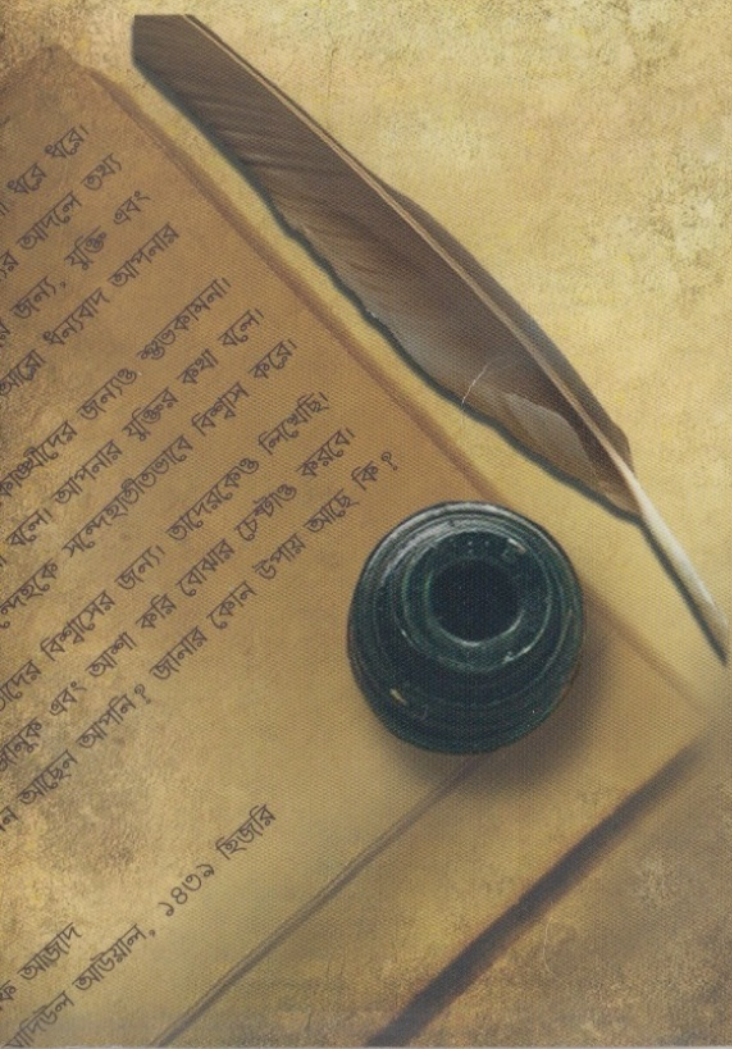 ধরে ধরে।
আদলে তথ্য
জন্য, যুক্তি এবং
আরো ধন্যবাদ আপনার
জন্যেও শুভকামনা।
বলে। আপনার যুক্তির কথা বলে।
সন্দেহাতীতভাবে বিশ্বাস করে।
বিশ্বাসের জন্যে। তাদেরকেও লিখেছি।
এবং আশা করি বোঝার চেষ্টাও করবে।
আছেন আপনি? জানার কোন উপায় আছে কি?
আজাদ
আউয়াল, ১৪৩৯ হিজরি